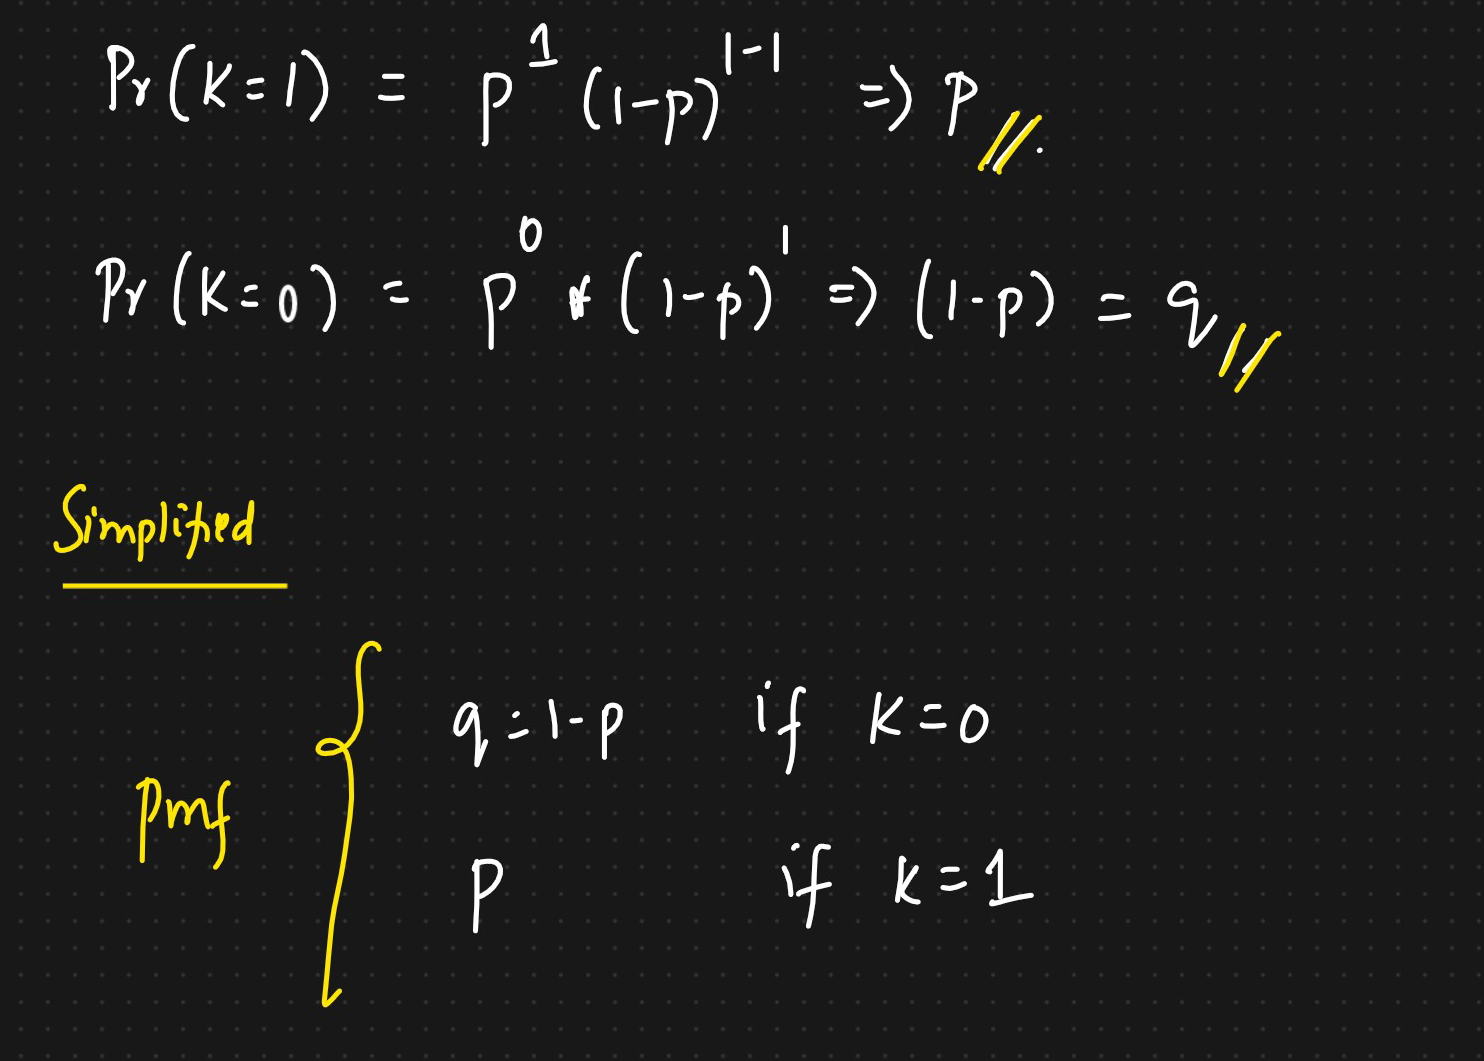 Pr(K=1) = p¹ (1-p)¹⁻¹ => p //.
Pr(K=0) = p⁰ * (1-p)¹ => (1-p) = q //
Simplified
pmf {
q=1-p if K=0
p if K=1